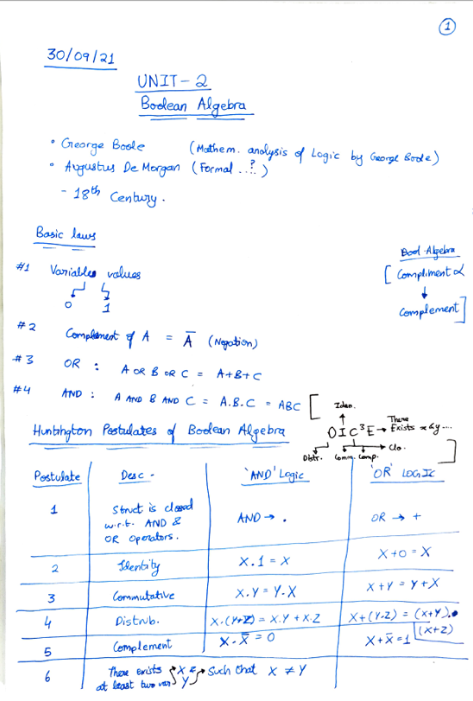 1
30/09/21
UNIT-2
Boolean Algebra
• George Boole (Mathem. analysis of Logic by George Boole)
• Augustus De Morgan (Formal ..?)
- 18th Century.
Basic laws
Bool Algebra
#1 Variables values
0 1
[Compliment α
↓
Complement]
#2 Complement of A = A̅ (Negation)
#3 OR : A OR B OR C = A+B+C
#4 AND : A AND B AND C = A.B.C = ABC
[ Iden.
OIC³E → There Exists x & y ...
Distr. Comm. Comp. Clo.
Huntington Postulates of Boolean Algebra
Postulate Desc. 'AND' Logic 'OR' LOGIC
1 Struct is closed w.r.t. AND & OR Operators. AND → . OR → +
2 Identity X.1 = X X+0 = X
3 Commutative X.Y = Y.X X+Y = Y+X
4 Distrib. X.(Y+Z) = X.Y + X.Z X+(Y.Z) = (X+Y).(X+Z)
5 Complement X.X̅ = 0 X+X̅ = 1
6 There exists at least two X & Y Such that X ≠ Y